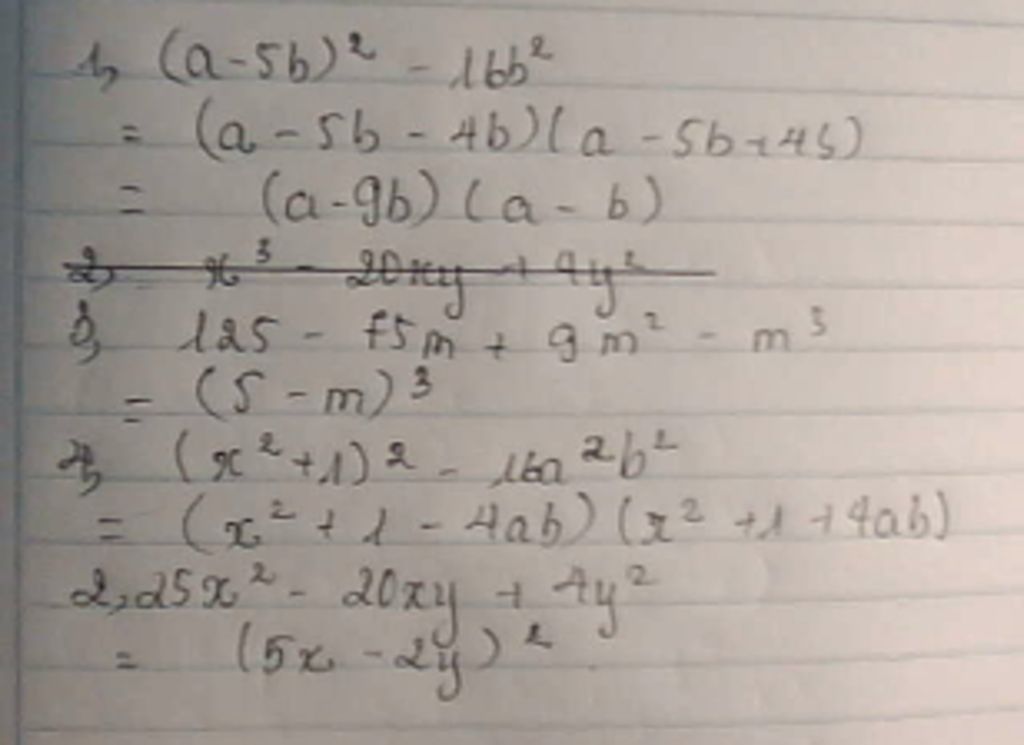 1, (a-5b)² - 16b²
= (a - 5b - 4b)(a - 5b + 4b)
= (a - 9b) (a - b)
2, x³ - 20xy + 4y²
3, 125 - 75m + 9m² - m³
= (5 - m)³
4, (x² + 1)² - 16a²b²
= (x² + 1 - 4ab) (x² + 1 + 4ab)
2, 25x² - 20xy + 4y²
= (5x - 2y)²